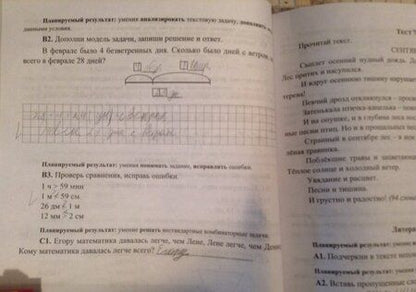 Планируемый результат: умения анализировать текстовую задачу, дополнять
данными условия.
В2. Дополни модель задачи, запиши решение и ответ.
В феврале было 4 безветренных дня. Сколько было дней с ветром,
всего в феврале 28 дней?
Планируемый результат: умения понимать задание, исправлять ошибки.
В3. Проверь сравнения, исправь ошибки.
1 ч > 59 мин
1 м < 59 см
26 дм 1 м
12 мм 2 см
Планируемый результат: умения решать нестандартные комбинаторные задачи.
С1. Егору математика давалась легче, чем Лене, Лене легче, чем Денису.
Кому математика давалась легче всего? Егору
Тест
Прочитай текст.
СЕНТЯ
Сыплет осенний нудный дождь. До
Лес притих и насупился.
И вдруг осеннюю тишину наруша
терева!
Певчий дрозд откликнулся - прос
Затенькала птичка-капелька - пено
И на опушке, и в глубине леса
ные песни птиц. Но и в прощальных
Странный в сентябре лес - в нём
лёная травинка.
Поблёкшие травы и
Тёплое солнце и холодный ветер.
Увядание и расцвет.
Песни и тишина.
И грустно и радостно! (94 слова)
Литера
Планируемый результат:
А1. Подчеркни в тексте
Планируемый результат:
А2. Вставь пропущенные